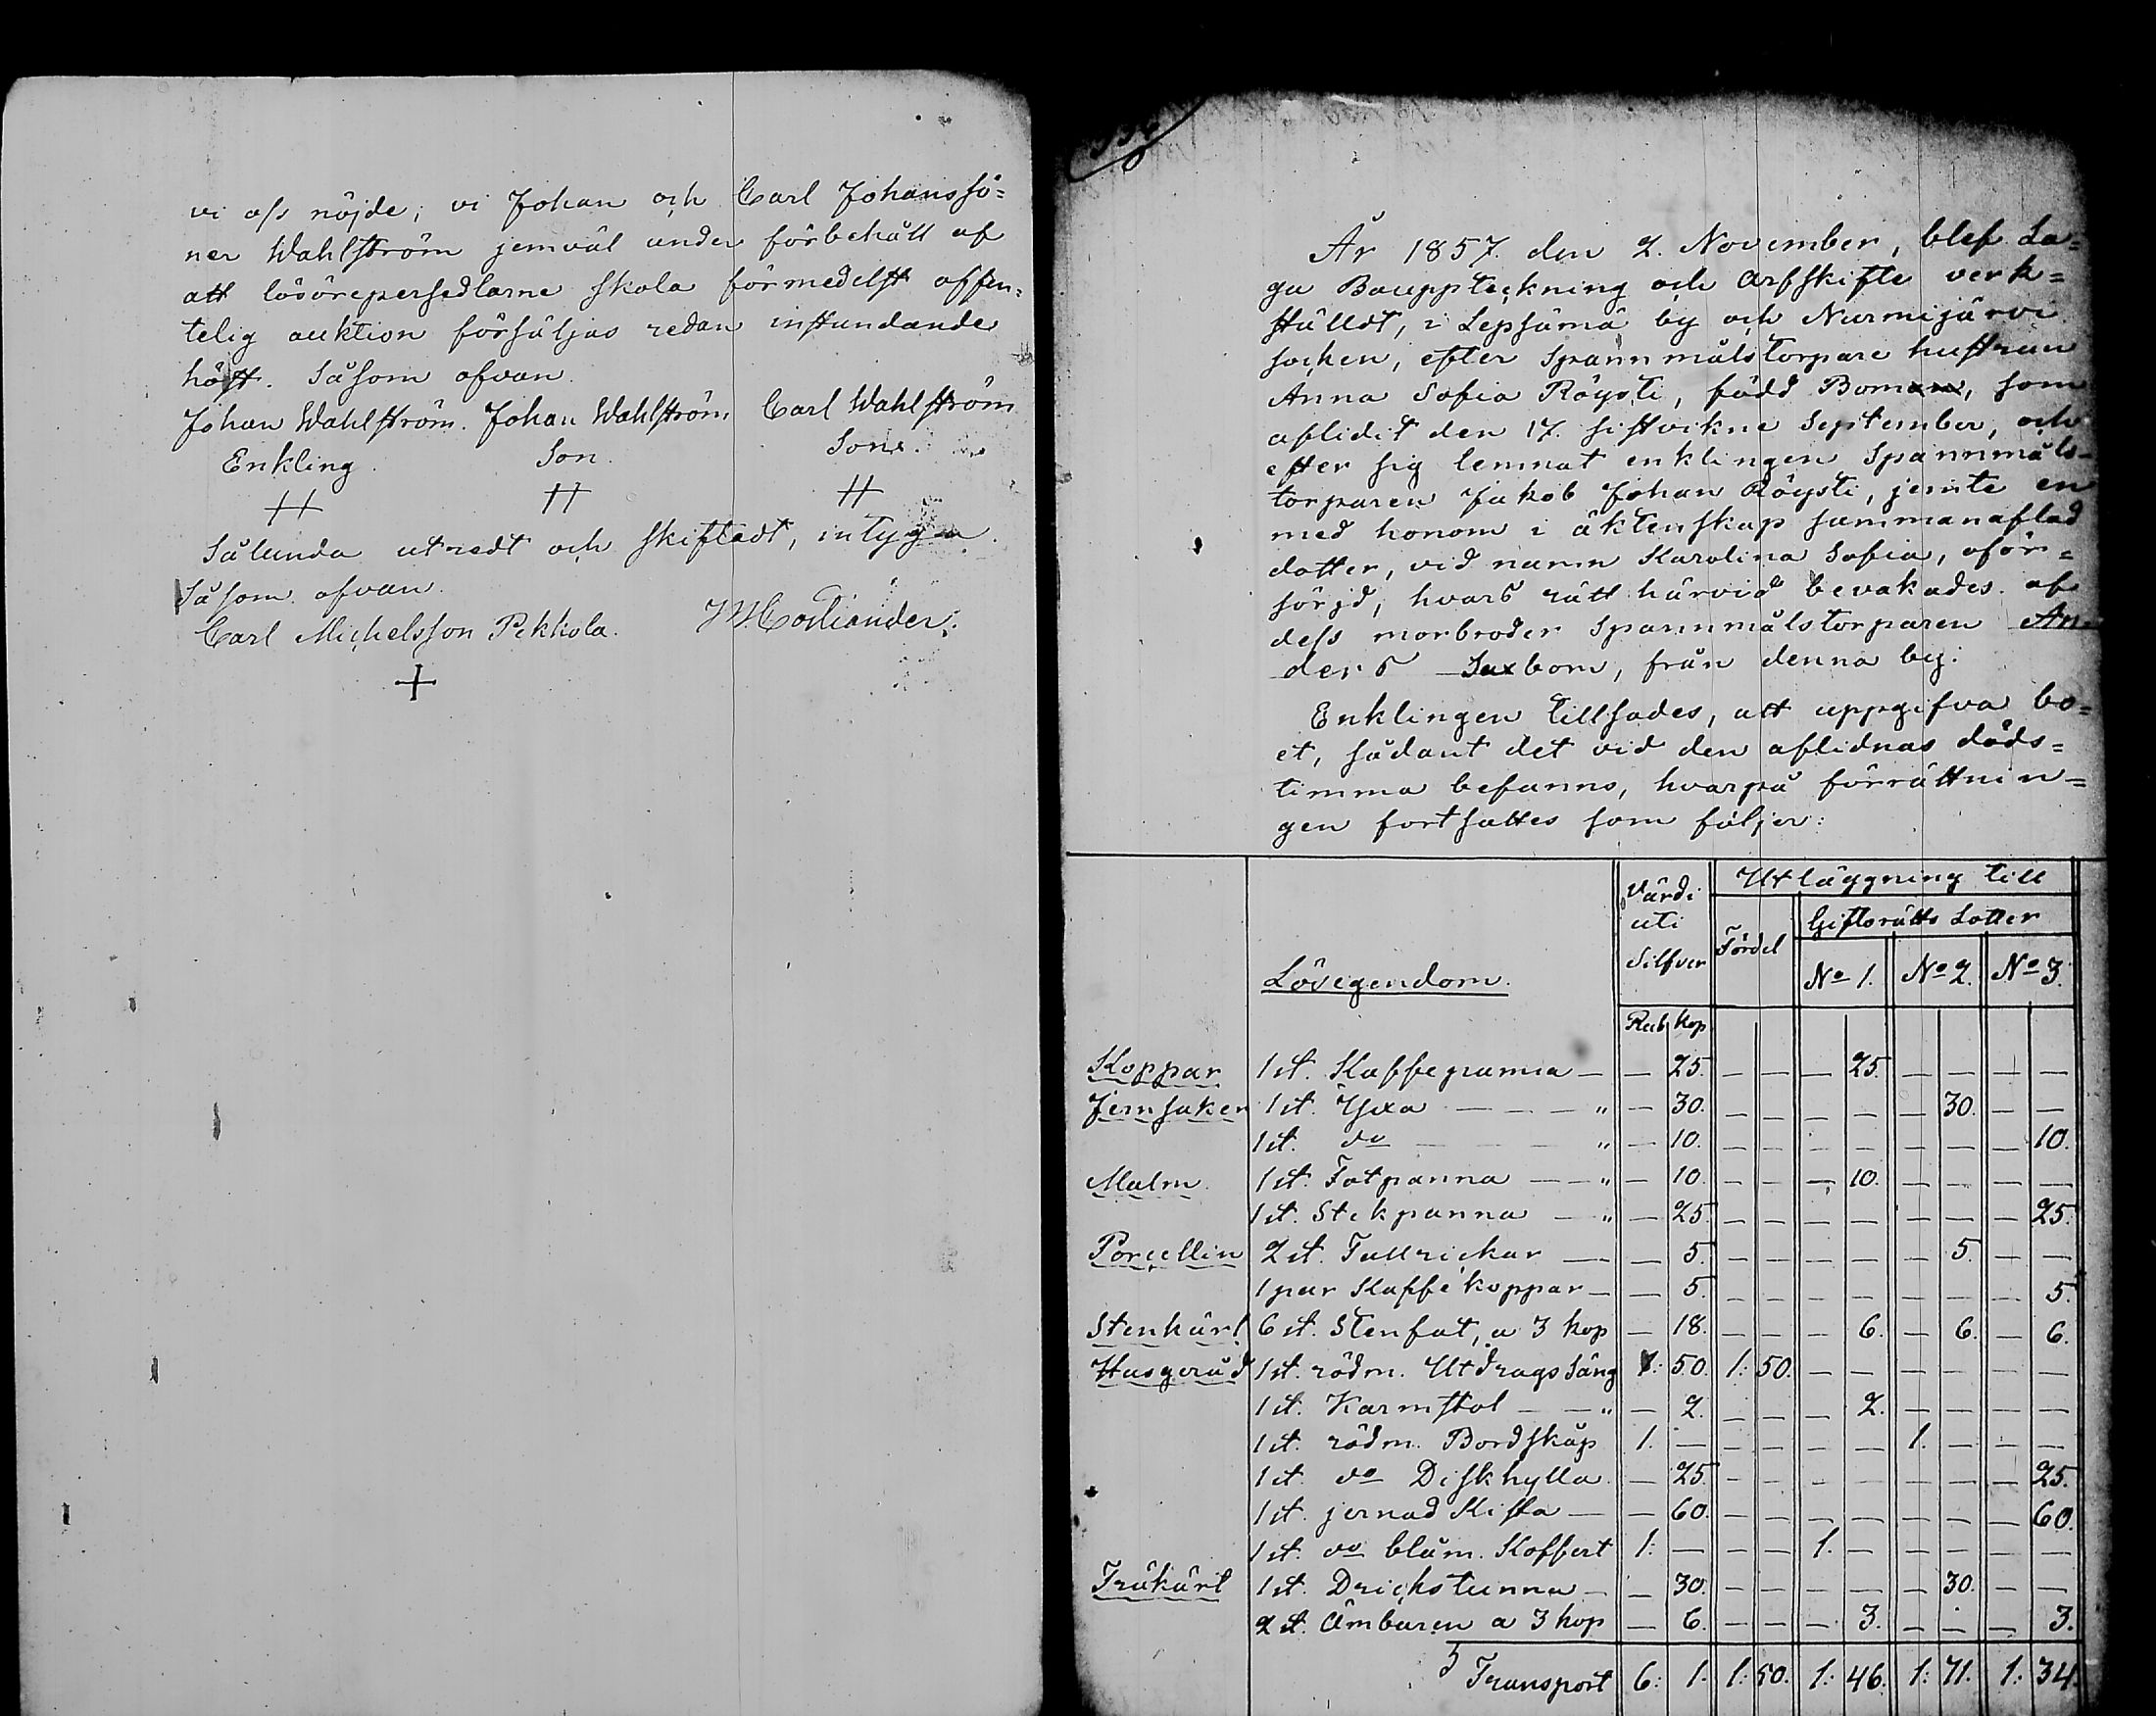 vi oss nöjde; vi Johan och Carl Johanssö=
ner Wahlström jemväl under förbehåll af
att lösörepersedlarne skola förmedelst offen=
telig auktion försäljas redan instundande
höst. Såsom ofvan.
Johan Wahlström. Johan Wahlström Carl Wahlström
Enkling. Son. Son.
Sålunda utredt och skiftadt, intyga.
Såsom ofvan.
Carl Michelsson Pekkola. Costiander.
År 1857. den 2. November, blef La=
ga Bouppteckning och Arfskifte verk=
ställdt, i Lepsämä by och Nurmijärvi
socken, efter Spannmålstorpare hustrun
Anna Sofia Röysti, född Boman, som
aflidit den 17. sistvikne September, och
efter sig lemnat enklingen Spannmåls-
torparen Jakob Johan Röysti, jemte en
med honom i äktenskap sammanaflad
dotter, vid namn Karolina Sofia, oför=
sörjd, hvars rätt härvid bevakades af
dess morbroder Spannmålstorparen An-
ders Saxbom, från denna by.
Enklingen tillsades, att uppgifva bo=
et, sådant det vid den aflidnas döds=
timma befanns, hvarpå förrättnin=
gen fortsattes som följer:
Värdi uti Silfver Utläggning till
Fördel Giftorätts Lotter
Lösegendom. No 1. No 2. No 3.
Rub. Kop.
Koppar 1 st. Kaffepanna — — 25. — — — 25. — — — —
Jernsaker 1 st. Yxa — — — " — 30. — — — — — 30. — —
1 st. do — — — " — 10. — — — — — — — 10.
Malm 1 st. Fotpanna — — " — 10. — — — 10. — — — —
1 st. Stekpanna — " — 25. — — — — — — — 25.
Porcellin 2 st. Tallrickar — — 5. — — — — — 5. — —
1 par Kaffekoppar — — 5. — — — — — — — 5.
Stenkärl 6 st. Stenfat, a 3 kop — 18. — — — 6. — 6. — 6.
Husgeråd 1 st. rödm. Utdragssäng 1: 50. 1: 50. — — — — — —
1 st. Karmstol — — " — 2. — — — 2. — — — —
1 st. rödm. Bordskåp 1. — — — — — 1. — — —
1 st. do Diskhylla — 25. — — — — — — — 25.
1 st. jernad Kista — — 60. — — — — — — — 60.
1 st. do blåm. Koffert 1: — — — 1. — — — — —
Träkärl 1 st. Drickstunna — — 30. — — — — — 30. — —
2 st. Ämbaren a 3 kop — 6. — — — 3. — — — 3.
Transport 6: 1. 1: 50. 1: 46. 1: 71. 1: 34.